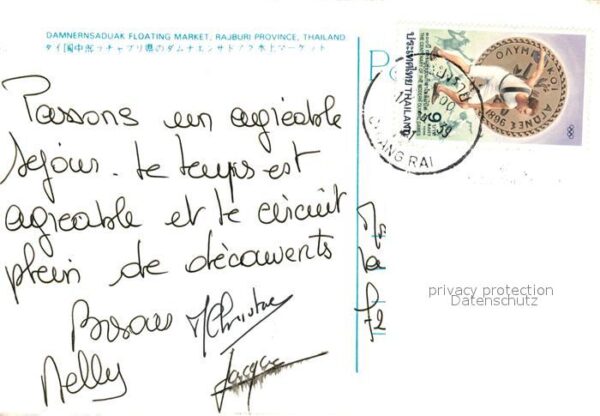 DAMNERNSADUAK FLOATING MARKET, RAJBURI PROVINCE, THAILAND
タイ国中部ラッチャブリ県のダムナエンサドアク水上マーケット
Passons un agréable
séjour. te temps est
agréable et te circuit
plein de découverts
Bisou M Christine
Nelly Jacque
ΟΛΥΜΠΙΑΚΟΙ ΑΓΩΝΕΣ 1896
ประเทศไทย THAILAND
9
CHIANG RAI
privacy protection
Datenschutz